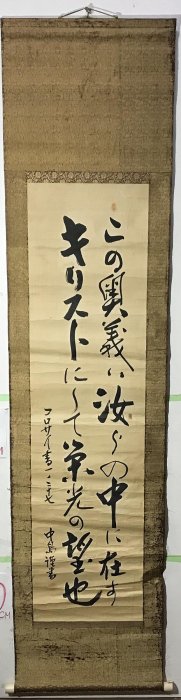 この奥義は汝らの中に在す
キリストにして栄光の望也
コロサイ書一〇二十七
中島謹書